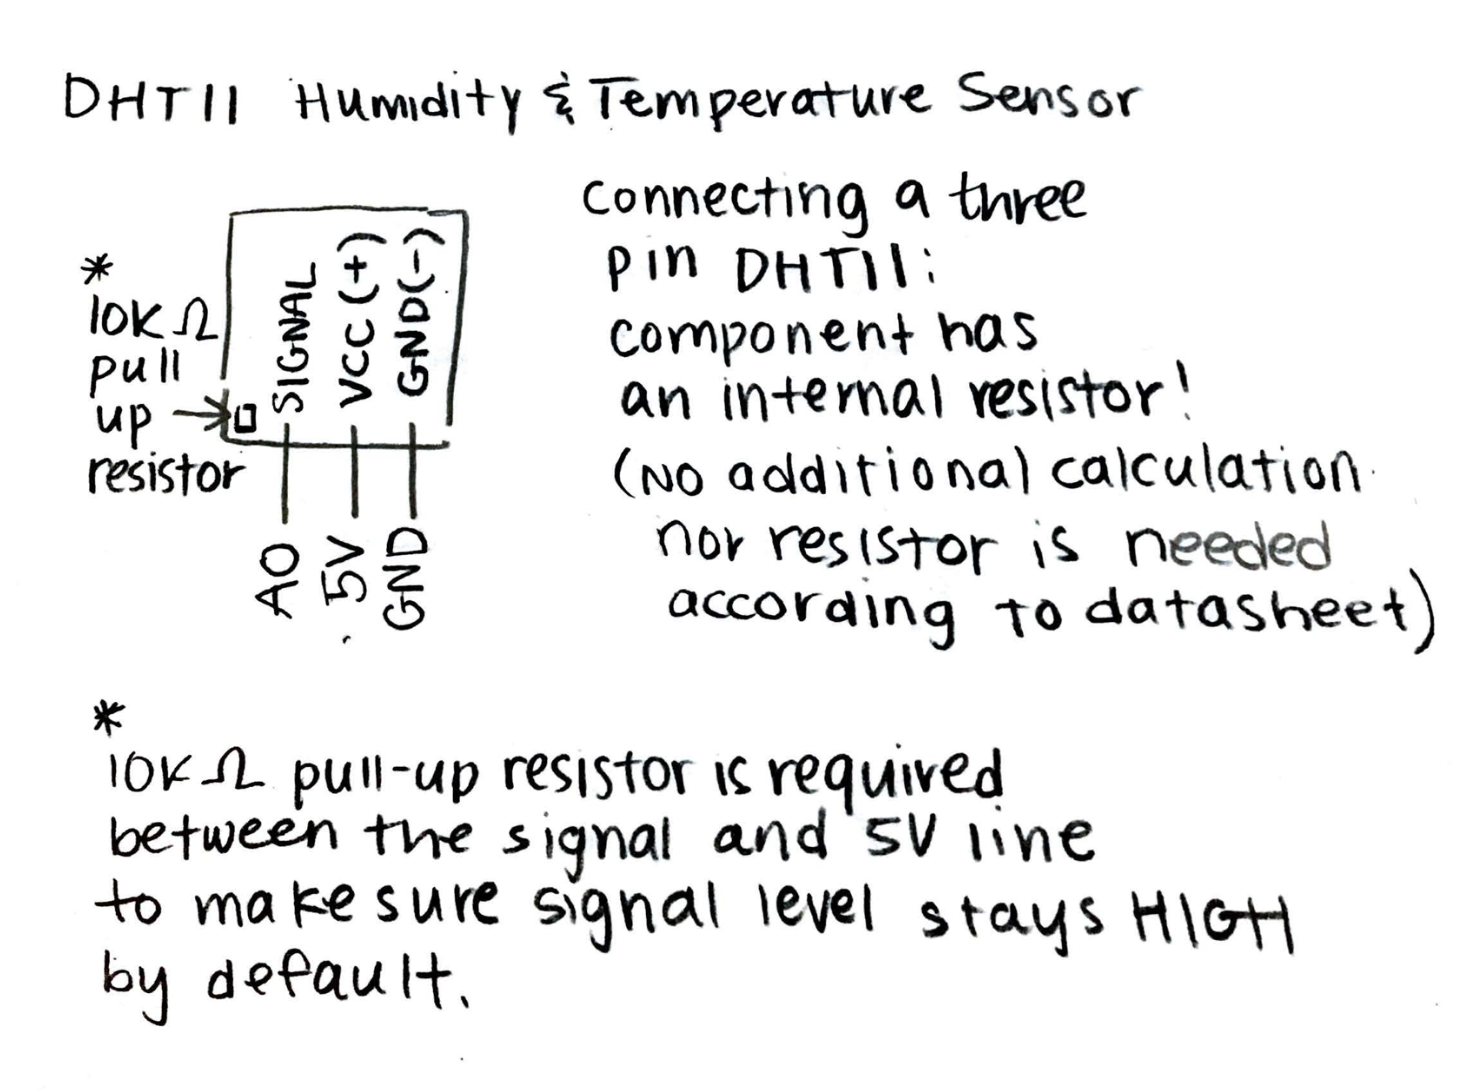 DHT11 Humidity & Temperature Sensor
*
10K Ω
pull
up
resistor
SIGNAL
VCC (+)
GND(-)
A0
5V
GND
connecting a three
pin DHT11:
component has
an internal resistor!
(No additional calculation
nor resistor is needed
according to datasheet)
*
10K Ω pull-up resistor is required
between the signal and 5V line
to make sure signal level stays HIGH
by default.